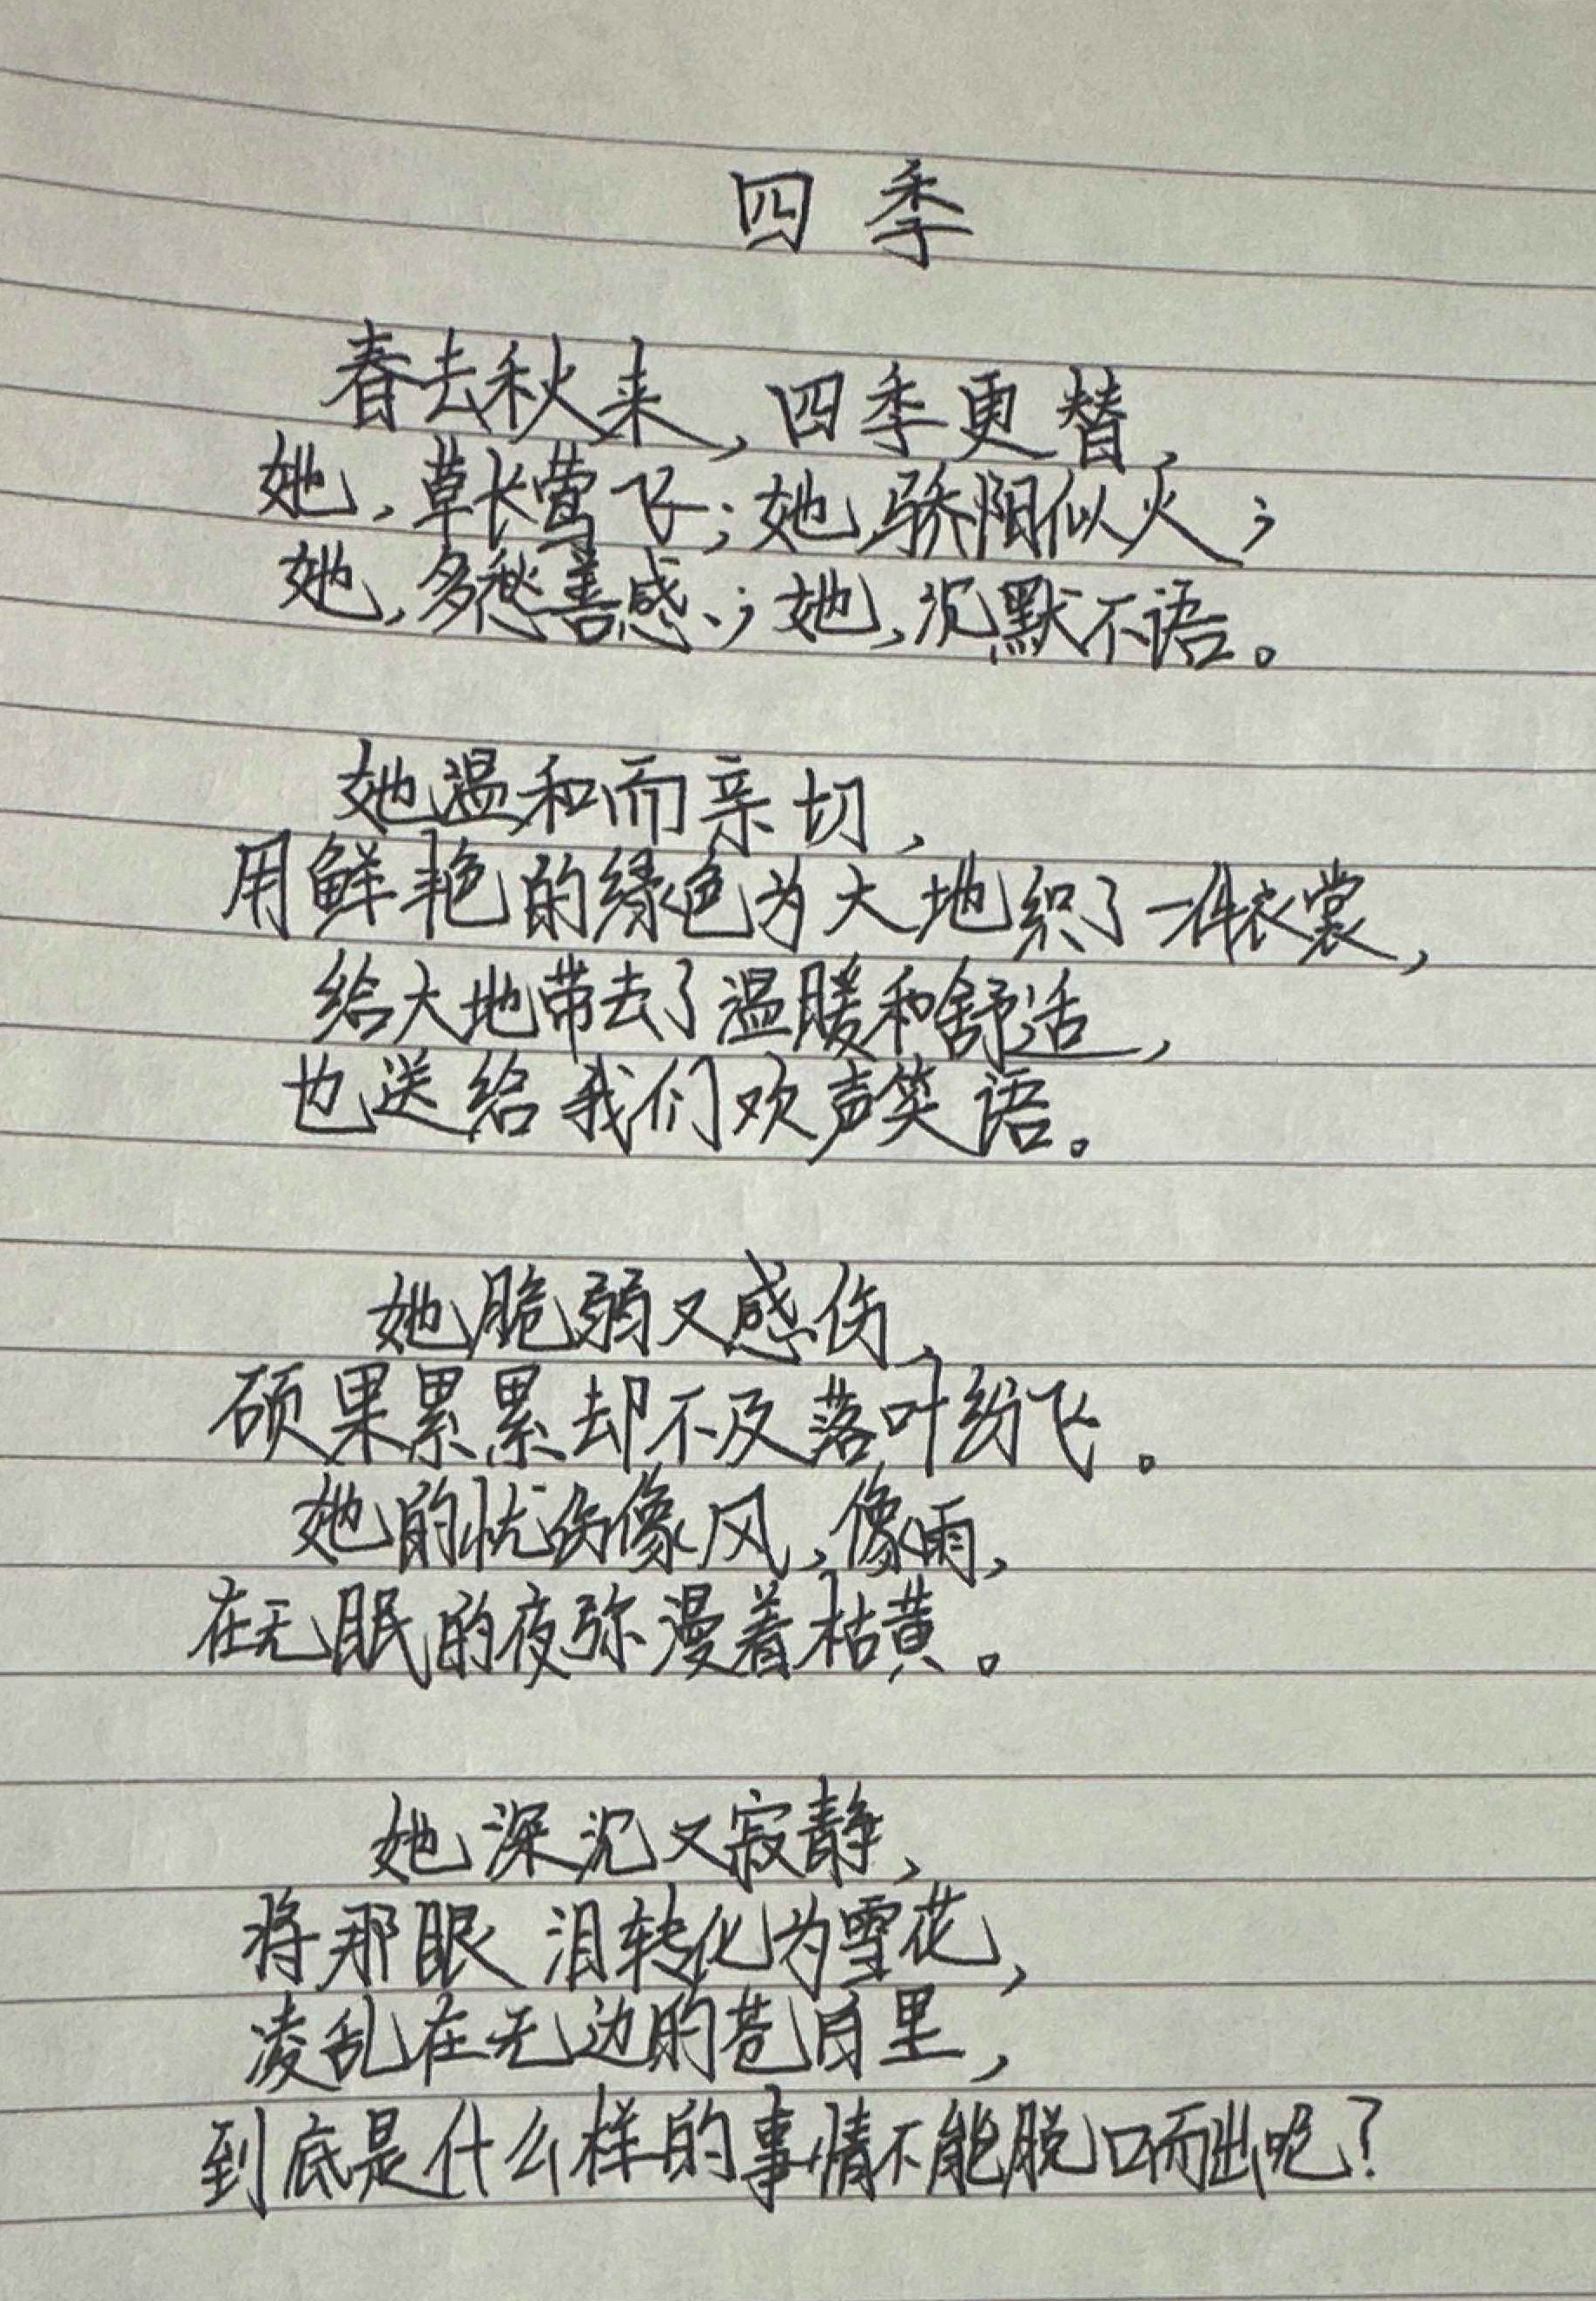 四季
春去秋来,四季更替,
她,草长莺飞;她,骄阳似火;
她,多愁善感;她,沉默不语。
她温和而亲切,
用鲜艳的绿色为大地织了一件衣裳,
给大地带去了温暖和舒适,
也送给我们欢声笑语。
她脆弱又感伤,
硕果累累却不及落叶纷飞。
她的忧伤像风,像雨,
在无眠的夜弥漫着枯黄。
她深沉又寂静,
将那眼泪转化为雪花,
凌乱在无边的苍白里,
到底是什么样的事情不能脱口而出呢?